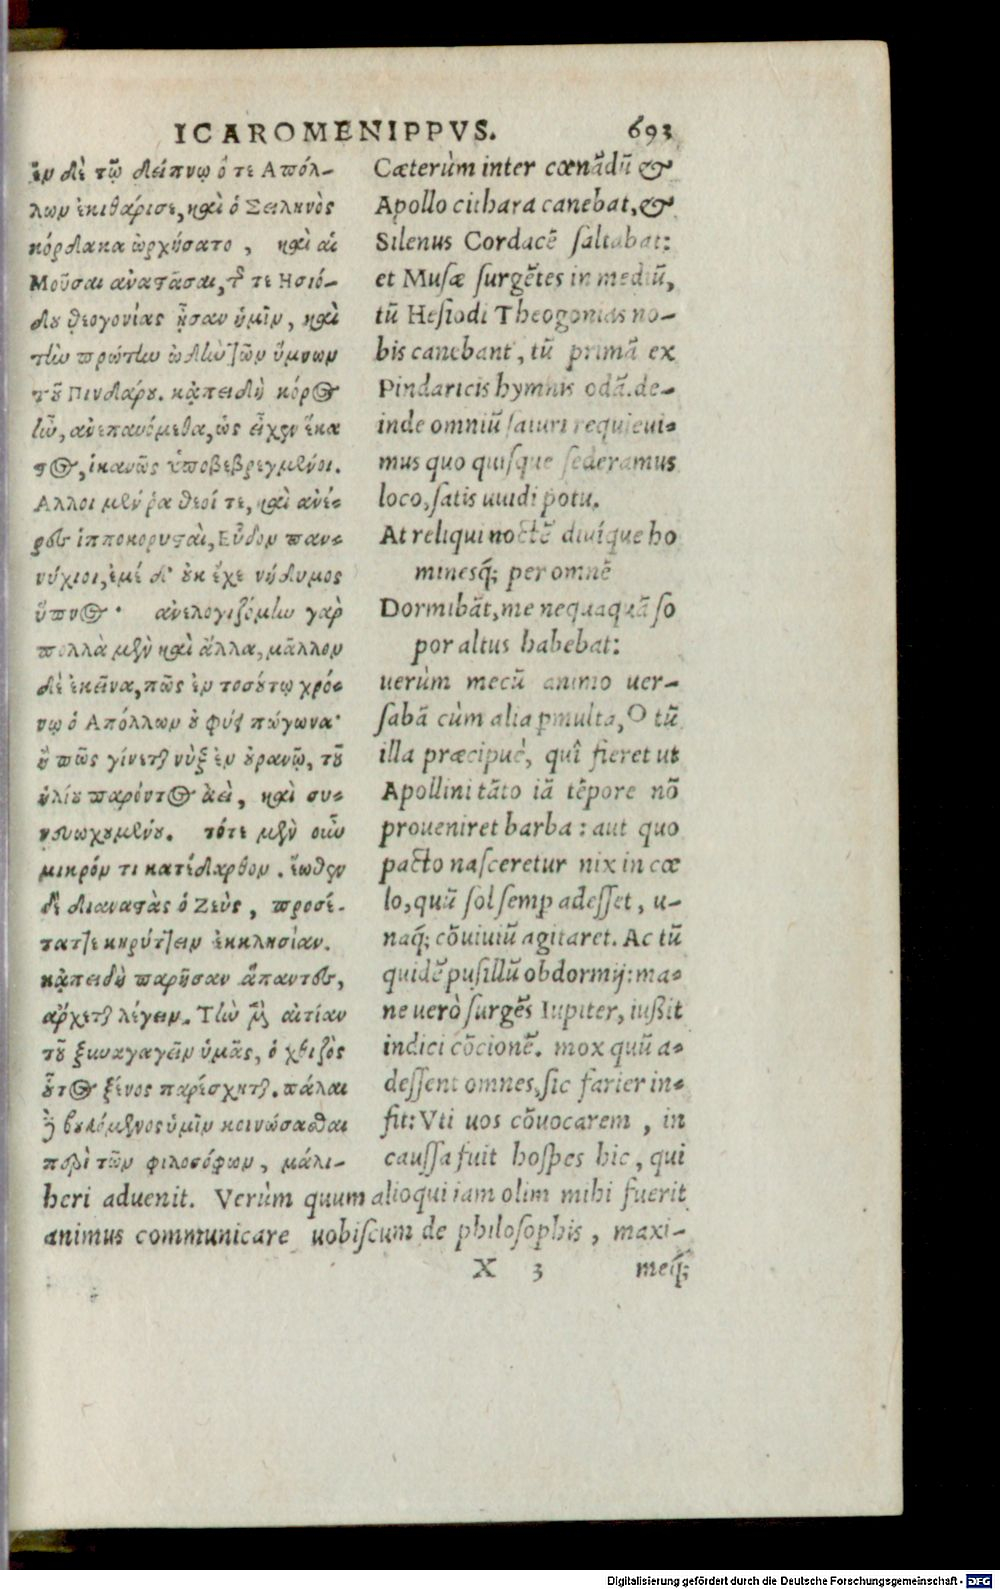 ICAROMENIPPVS. 693
ἐν δὲ τῷ δείπνῳ ὅ τε Ἀπόλ-
λων ἐκιθάρισε, καὶ ὁ Σειληνὸς
κόρδακα ὠρχήσατο, καὶ αἱ
Μοῦσαι ἀναστᾶσαι, τῆς τε Ἡσιό-
δου θεογονίας ᾖσαν ἡμῖν, καὶ
τὴν πρώτην ᾠδὴν τῶν ὕμνων
τοῦ Πινδάρου. κἀπειδὴ κόρος
ἦν, ἀνεπαυόμεθα, ὡς εἶχεν ἕκα
στος, ἱκανῶς ὑποβεβρεγμένοι.
Ἄλλοι μέν ῥα θεοί τε, καὶ ἀνέ-
ρες ἱπποκορυσταὶ, Εὗδον παν-
νύχιοι, ἐμὲ δ' οὐκ ἔχε νήδυμος
ὕπνος· ἀνελογιζόμην γὰρ
πολλὰ μὲν καὶ ἄλλα, μᾶλλον
δὲ ἐκεῖνα, πῶς ἐν τοσούτῳ χρό-
νῳ ὁ Ἀπόλλων οὐ φύει πώγωνα·
ἢ πῶς γίνεται νὺξ ἐν οὐρανῷ, τοῦ
ἡλίου παρόντος ἀεὶ, καὶ συ-
νευωχουμένου. τότε μὲν οὖν
μικρόν τι κατέδαρθον. ἕωθεν
δὲ διαναστὰς ὁ Ζεὺς, προσέ-
ταττε κηρύττειν ἐκκλησίαν.
κἀπειδὴ παρῆσαν ἅπαντες,
ἄρχεται λέγειν. Τὴν μὲν αἰτίαν
τοῦ ξυναγαγεῖν ὑμᾶς, ὁ χθιζὸς
οὗτος ξένος παρέσχηται. πάλαι
δὲ βουλόμενος ὑμῖν κοινώσασθαι
περὶ τῶν φιλοσόφων, μάλι-
Cæterùm inter cœnãdũ &
Apollo cithara canebat, &
Silenus Cordacẽ saltabat:
et Musæ surgẽtes in mediũ,
tũ Hesiodi Theogonias no-
bis canebant, tũ primã ex
Pindaricis hymnis odã. de-
inde omniũ saturi requieui-
mus quo quisque sederamus
loco, satis uuidi potu.
At reliqui noctẽ diuíque ho
minesq́; per omnẽ
Dormibãt, me nequaquã so
por altus habebat:
uerùm mecũ animo uer-
sabã cùm alia pmulta, O tũ
illa præcipuè, quî fieret ut
Apollini tãto iã tẽpore nõ
proueniret barba: aut quo
pacto nasceretur nix in cœ
lo, quũ sol semp adesset, u-
naq́; cõuiuiũ agitaret. Ac tũ
quidẽ pusillũ obdormij: ma-
ne uerò surgẽs Iupiter, iußit
indici cõcionẽ. mox quũ a-
dessent omnes, sic farier in-
fit: Vti uos cõuocarem, in
caussa fuit hospes hic, qui
heri aduenit. Verùm quum alioqui iam olim mihi fuerit
animus communicare uobiscum de philosophis, maxi-
X 3 meq́;
Digitalisierung gefördert durch die Deutsche Forschungsgemeinschaft - DFG